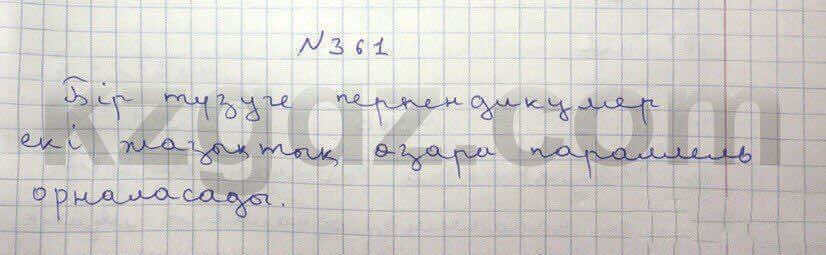 N361
Бір түзуге перпендикуляр
екі жазықтық өзара параллель
орналасады.
kzgdz.com